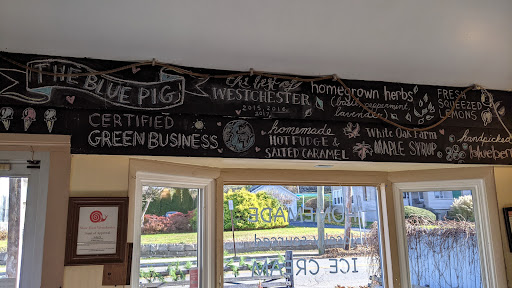 THE BLUE PIG
CERTIFIED
GREEN BUSINESS
the best of
WESTCHESTER
2015, 2016,
2017
homemade
HOT FUDGE &
SALTED CARAMEL
homegrown herbs
(basil, peppermint,
lavender)
White Oak Farm
MAPLE SYRUP
FRESH
SQUEEZED
LEMONS
handpicked
blueberr
HOMEMADE
ICE CREAM